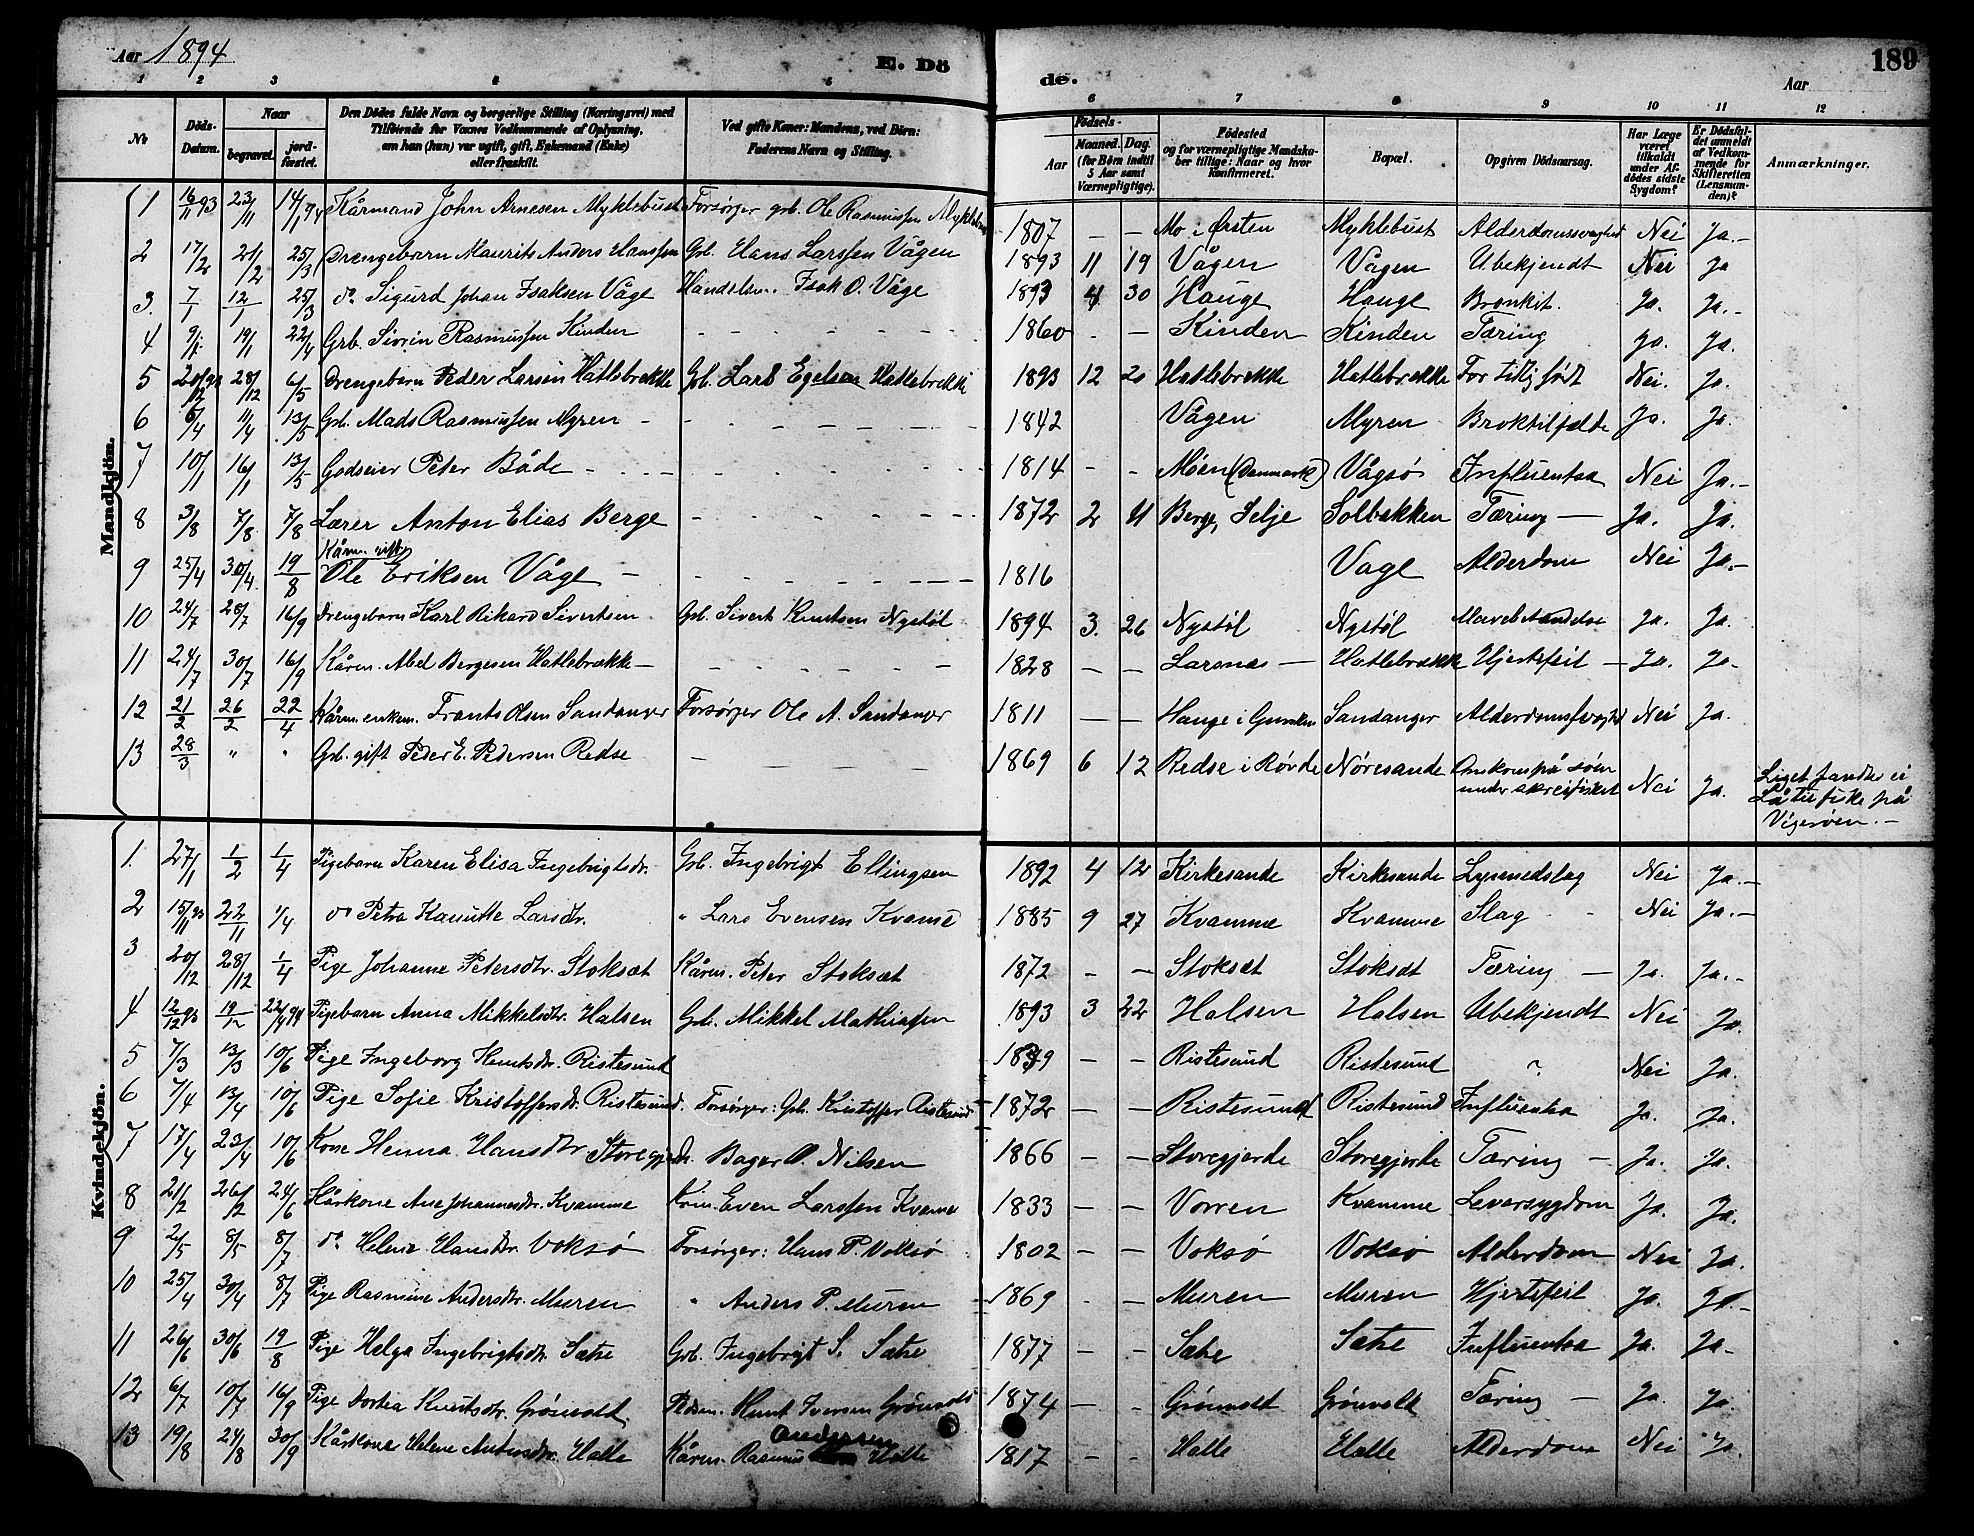 Aar 1894
E. Döde.
Aar
189
1 2 3 4 5 6 7 8 9 10 11 12
№ Döds-Datum. Naar begravet. jordfæstet. Den Dödes fulde Navn og borgerlige Stilling (Næringsvei) med Tilföiende for Voxnes Vedkommende af Oplysning, om han (hun) var ugift, gift, Enkemand (Enke) eller fraskilt. Ved gifte Koner: Mandens, ved Börn: Faderens Navn og Stilling. Födsels- Aar Maaned. Dag. (for Börn indtil 5 Aar samt Værnepligtige). Födested og for værnepligtige Mandskaber tillige: Naar og hvor Konfirmeret. Bopæl. Opgiven Dödsaarsag. Har Læge været tilkaldt under Afdödes sidste Sygdom? Er Dödsfaldet anmeldt af Vedkommende for Skifteretten (Lensmanden)? Anmærkninger.
Mandkjön.
1 16/11 93 23/11 14/1 94 Kårmand John Arnesen Myklebust Forsørger grb. Ole Rasmussen Myklebust 1807 – – Mo i Ørsten Myklebust Alderdomssvaghed Nei Ja.
2 17/2 21/2 25/3 Drengebarn Maurits Anders Hanssen Grb. Hans Larssen Vågen 1893 11 19 Vågen Vågen Ubekjendt Nei Ja
3. 7/1 12/1 25/3 do Sigurd Johan Isaksen Våge Handelsm. Isak O. Våge 1893 4 30 Hauge Hauge Bronkit. Ja. Ja.
4 9/1 19/1 22/4 Grb. Sivrin Rasmussen Kinden 1860 – – Kinden Kinden Tæring Ja. Ja.
5 20/12 93 28/12 6/5 Drengebarn Peder Larsen Hatlebrække Grb. Lars Egelsen Hatlebrekke 1893 12 20 Hatlebrække Hatlebrække For tidlig født Nei. Ja.
6 6/4 11/4 13/5 Grb. Mads Rasmussen Myren 1842 Vågen Myren Broktilfælde Ja. Ja.
7 10/1 16/1 13/5 Godseier Peter Både 1814 – – Møen (Danmark) Vågsø Influentsa Nei Ja.
8 3/8 7/8 7/8 Lærer Anton Elias Berge 1872 2 11 Berge, Selje Solbakken Tæring Ja. Ja.
9 25/4 30/4 19/8 Kårm. gift Ole Eriksen Våge 1816 Vage Alderdom Nei Ja.
10 24/7 28/7 16/9 Drengebarn Karl Rikard Sivertsen Grb. Sivert Knutsen Nystøl 1894 3. 26 Nystøl Nystøl Mavebetændelse Ja. Ja.
11 24/7 30/7 16/9 Kårm. Abel Bergesen Hatlebrække 1828 – – Larsnes Hatlebrække Hjertefeil Ja. Ja.
12 21/2 26/2 22/4 Kårm. enkem. Frants Olsen Sandanger Forsørger Ole A. Sandanger 1811 – – Hauge i Gursken Sandanger Alderdomssvaghed Nei Ja.
13 28/3 " " Grb. gift Peder E. Pedersen Redse 1869 6 12 Redse i Røvde Nøresande Omkom på søen under skreifisket Nei Ja. Liget fandtes ei Lå til fiske på Vigerøen.
Kvindekjön.
1. 27/1 1/2 1/4 Pigebarn Karen Elisa Ingebrigtsdr. Grb. Ingebrigt Ellingsen 1892 4 12 Kirkesande Kirkesande Lysnedslag Nei Ja.
2 15/11 93 22/11 1/4 do Petra Kanutte Larsdtr. " Lars Evensen Kvame 1885 9 27 Kvamme Kvamme Slag Nei Ja.
3 20/12 28/12 1/4 Pige Johanne Petersdtr. Stoksæt Kårm. Peter Stoksæt 1872 – – Stoksæt Stoksæt Tæring Ja. Ja.
4 12/12 93 19/12 22/4 94 Pigebarn Anna Mikkelsdtr. Halsen Grb. Mikkel Mathiassen 1893 3 22 Halsen Halsen Ubekjendt Nei Ja.
5 7/3 13/3 10/6 Pige Ingeborg Knutsdr. Ristesund 1839 – – Ristesund Ristesund ? Nei Ja.
6 7/4 13/4 10/6 Pige Sofie Kristoffersdr. Ristesund. Forsørger: Grb. Kristoffer Ristesund 1872 – – Ristesund Ristesund Influentsa Ja. Ja.
7 17/4 23/4 10/6 Kone Henna Hansdtr Storegjerde. Bager O. Nilsen 1866 – – Storegjerde Storegjerde Tæring Ja. Ja.
8 21/2 26/2 24/6 Kårkone Ane Johannesdtr. Kvamme Kårm. Even Larssen Kvame 1833 – – Vorren Kvamme Leversygdom Ja. Ja.
9 2/5 8/5 8/7 do Helene Hansdtr. Voksø Forsørger: Hans P. Voksø 1802 – – Voksø Voksø Alderdom Nei Ja.
10 25/4 30/4 8/7 Pige Rasmine Andersdtr. Muren " Anders P. Muren 1869 – – Muren Muren Hjertefeil Ja. Ja.
11 26/6 30/6 19/8 Pige Helga Ingebrigtsdtr. Sætre Grb. Ingebrigt S. Sætre 1877 – – Sætre Sætre Influentsa Ja. Ja.
12 6/7 10/7 16/9 Pige Dortea Knutsdtr. Grønvold Knut Iversen Grønvold 1874 – – Grønvolt Grønvolt Tæring Ja. Ja.
13 19/8 24/8 30/9 Kårkone Helene Antonsdtr. Halle Kårm. Rasmus Andersen Halle 1817 – – Halle Halle Alderdom Nei Ja.